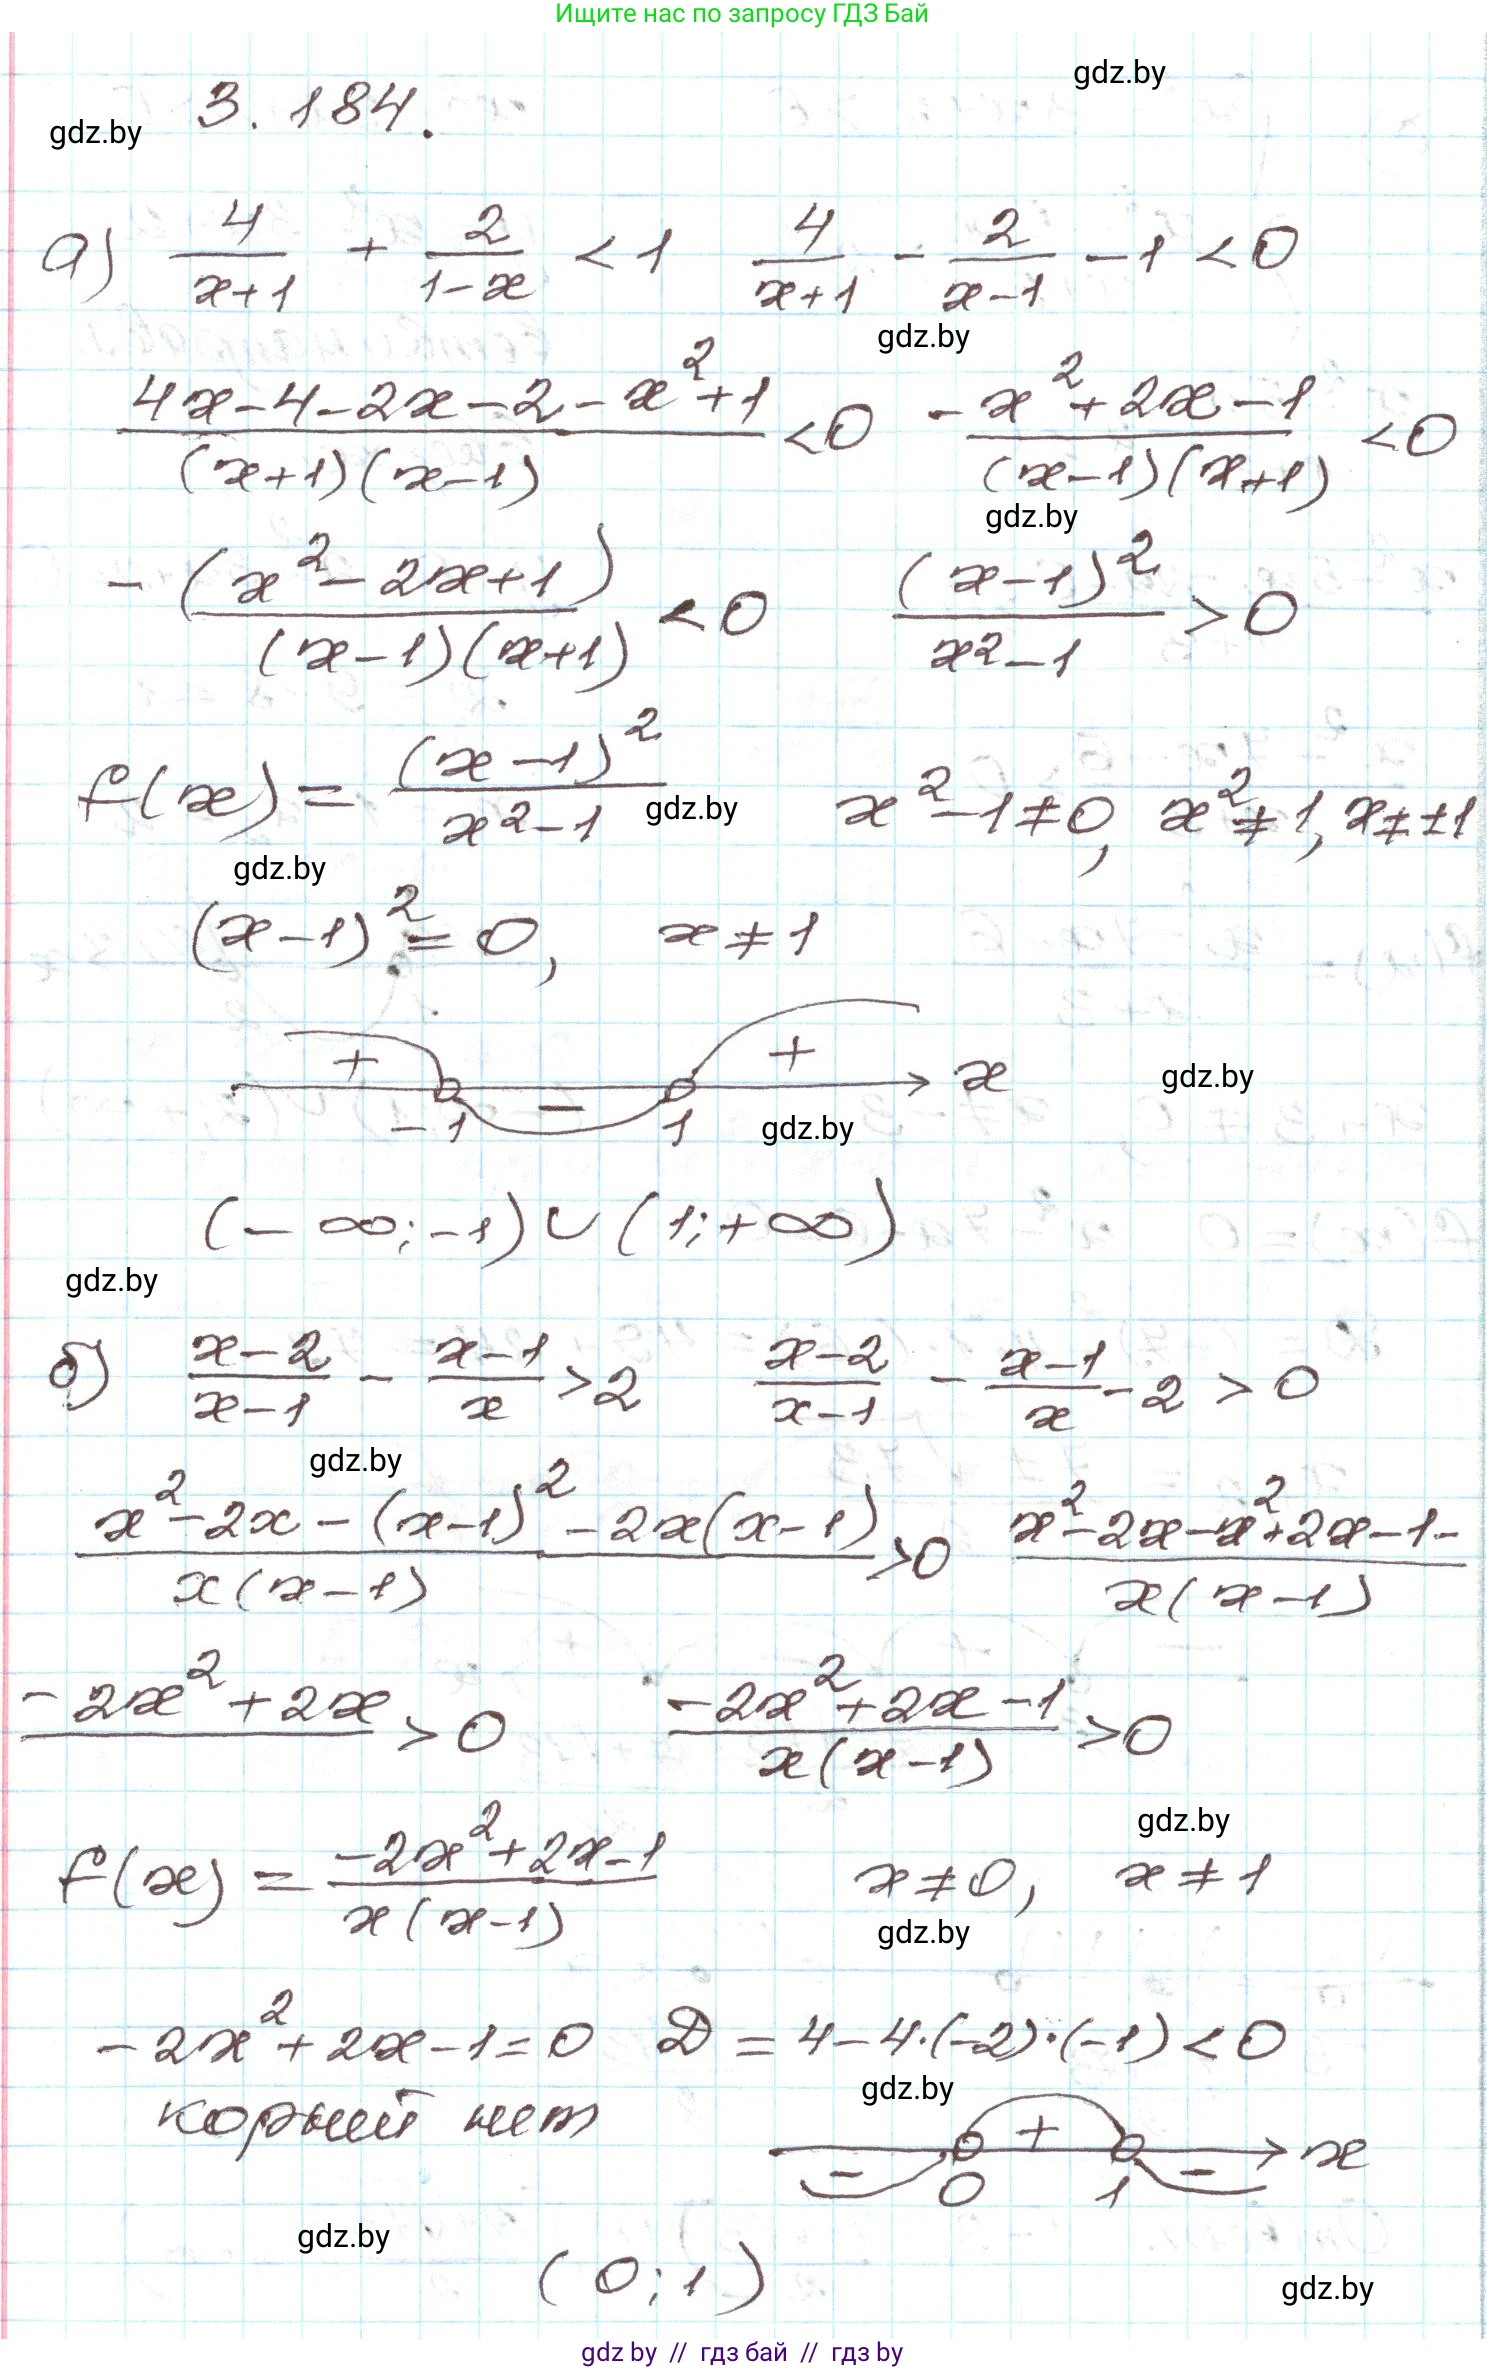 Ищите нас по запросу ГДЗ Бай
gdz.by
3.184.
gdz.by
а) 4/(x+1) + 2/(1-x) < 1   4/(x+1) - 2/(x-1) - 1 < 0
gdz.by
(4x-4-2x-2-x²+1)/((x+1)(x-1)) < 0   (-x²+2x-1)/((x-1)(x+1)) < 0
gdz.by
-(x²-2x+1)/((x-1)(x+1)) < 0   (x-1)²/(x²-1) > 0
f(x) = (x-1)²/(x²-1)   x²-1≠0, x²≠1, x≠±1
gdz.by
gdz.by
(x-1)²=0,   x≠1
+ - + x
-1 1
gdz.by
gdz.by
(-∞;-1)∪(1;+∞)
gdz.by
б) (x-2)/(x-1) - (x-1)/x > 2   (x-2)/(x-1) - (x-1)/x - 2 > 0
gdz.by
(x²-2x-(x-1)²-2x(x-1))/(x(x-1)) > 0   (x²-2x-x²+2x-1-)/(x(x-1))
-2x²+2x > 0   (-2x²+2x-1)/(x(x-1)) > 0
gdz.by
f(x) = (-2x²+2x-1)/(x(x-1))   x≠0,   x≠1
gdz.by
-2x²+2x-1=0   D=4-4·(-2)·(-1)<0
gdz.by
корний нет
- + - x
0 1
gdz.by
(0;1)
gdz.by
gdz.by // гдз бай // гдз by